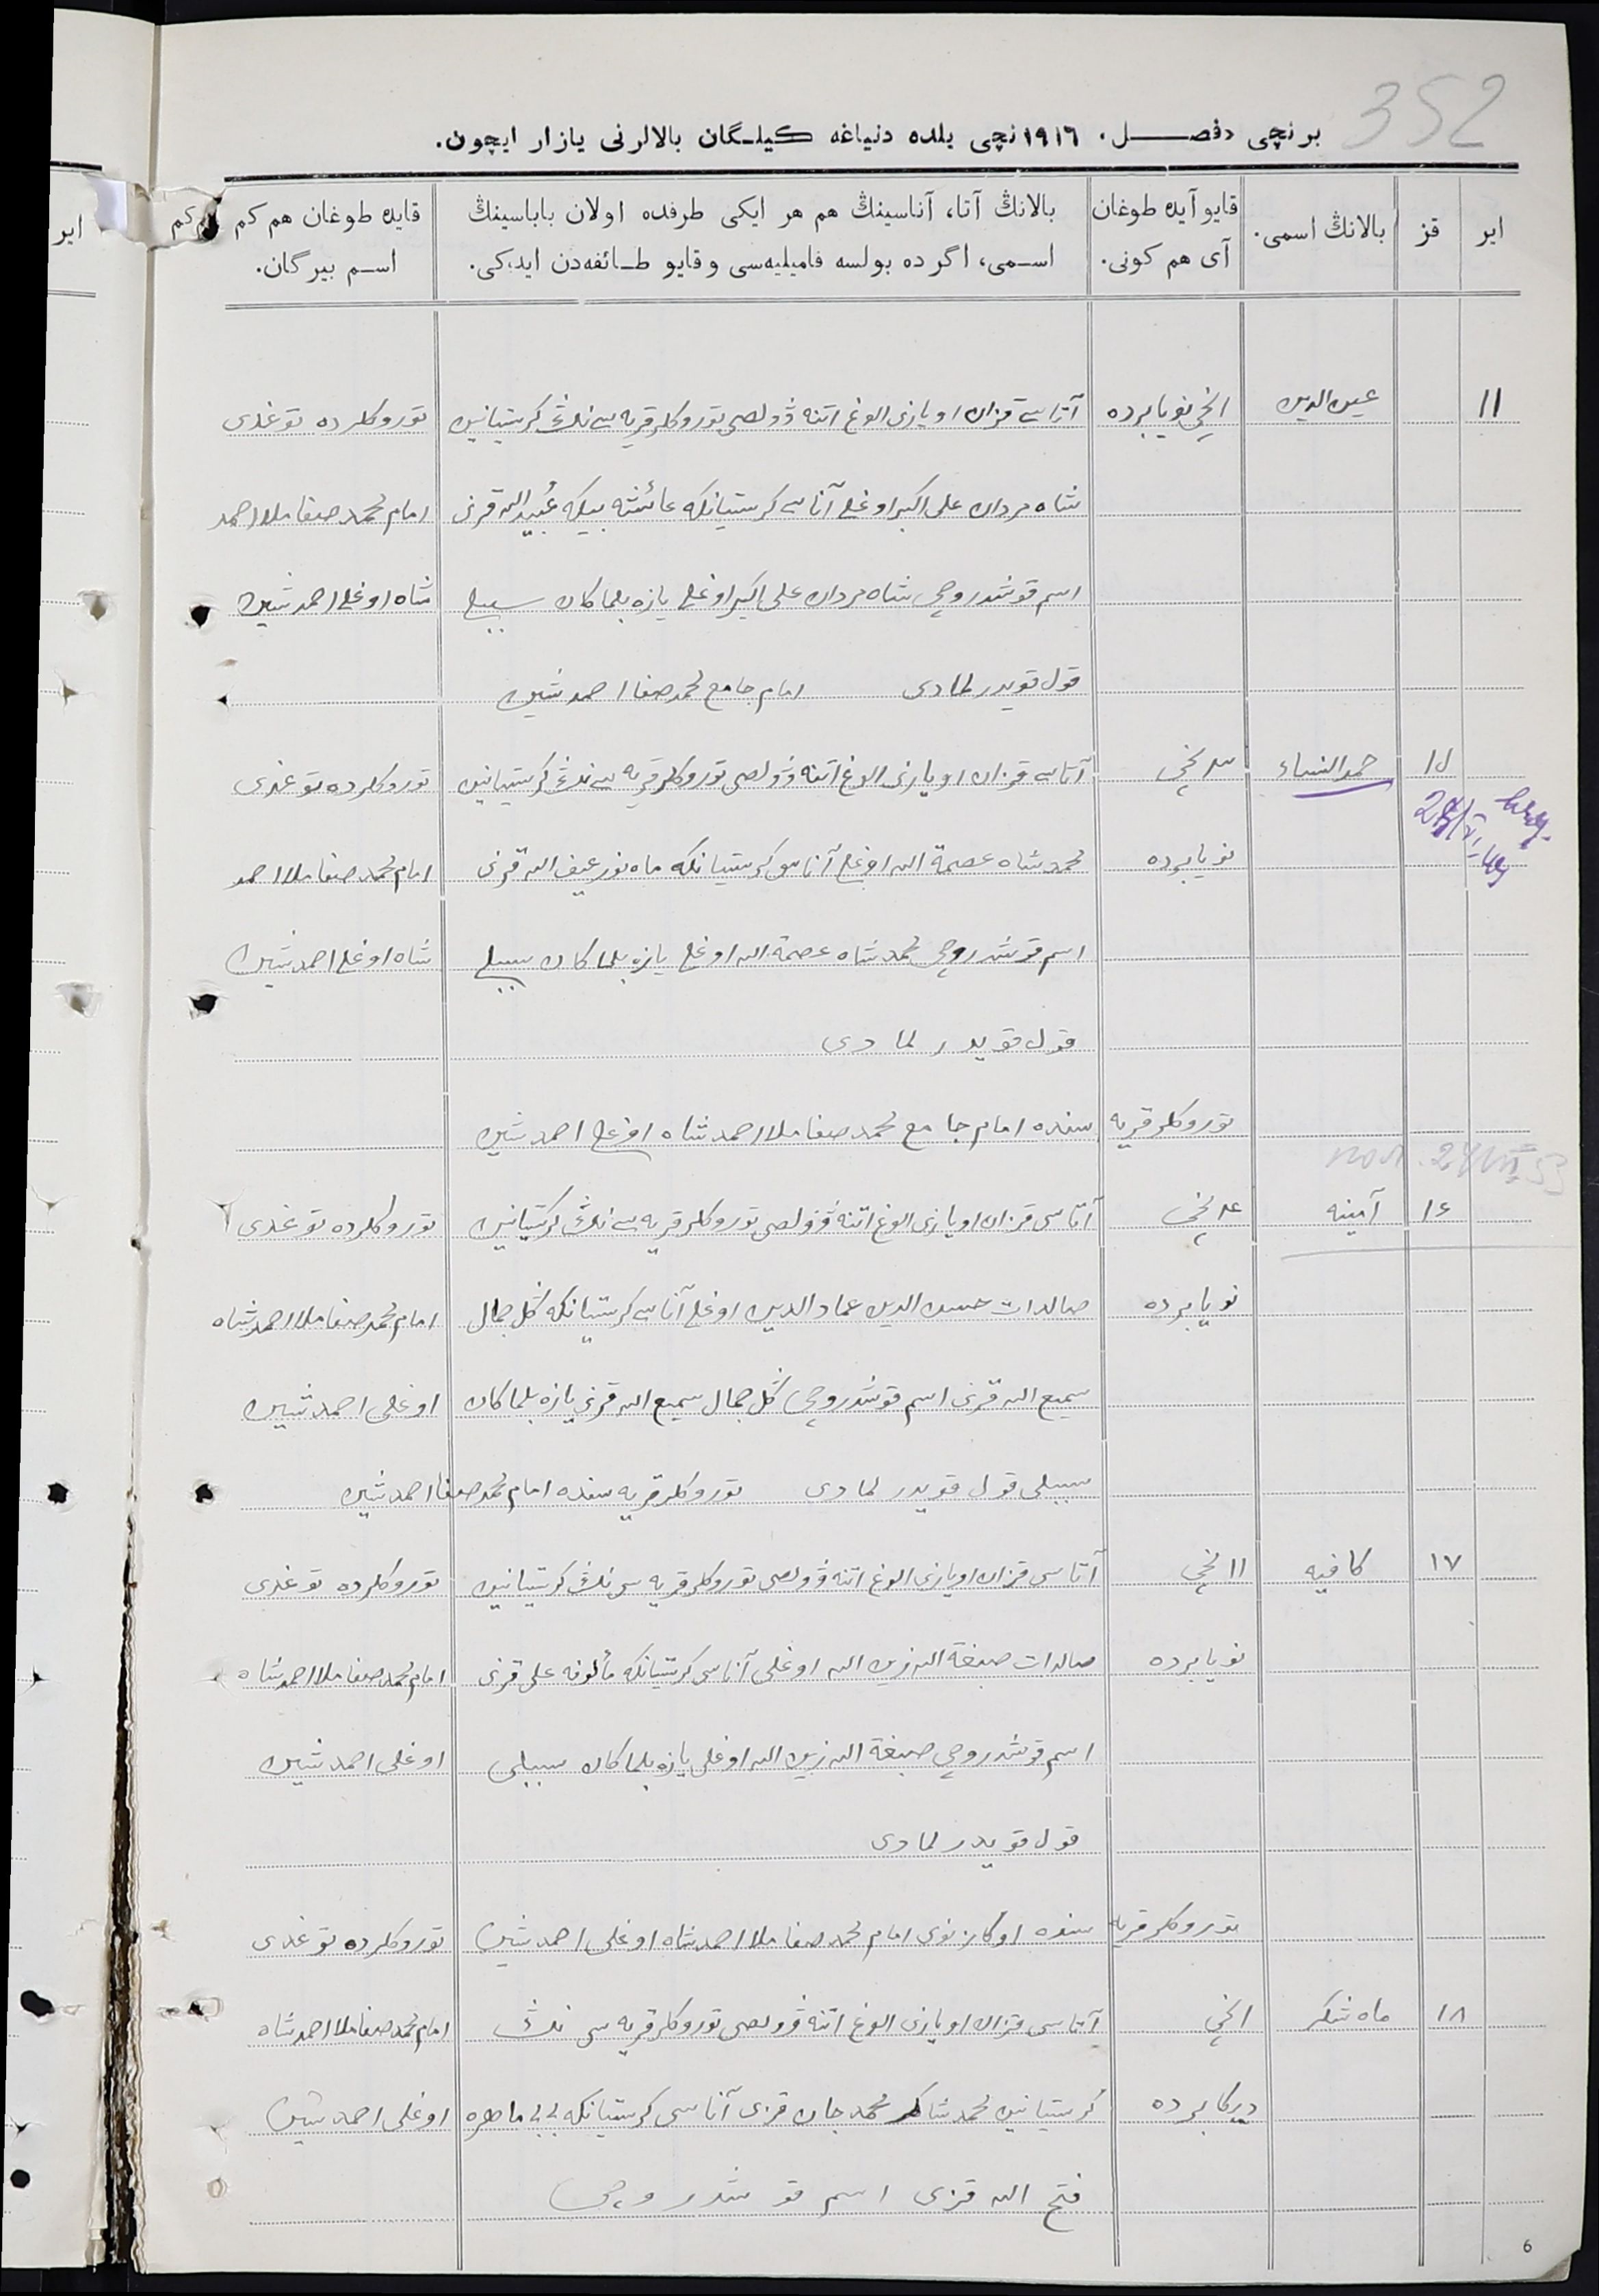 352
برنچی دفصل، ١٩١٦نچی یلده دنیاغه کیلگان بالالرنی یازار ایچون.
ایر
قز
بالانڭ اسمی.
قایو آیده طوغان
آی هم کونی.
بالانڭ آتا، آناسینڭ هم هر ایکی طرفده اولان باباسینڭ
اسمی، اگر ده بولسه فامیلیه‌سی و قایو طائفه‌دن ایدیکی.
قایده طوغان هم کم
اسم بیرگان.
١١ عین الدین ١نچی نویابرده آتاسی قزان اویازی الوغ اتنه ڤولصی توروکلر قریه سی ننڭ کرستیانین توروکلرده توغدی
شاه مردان علی اکبر اوغلی آناسی کرستیانکه عائشه بیکه عبیدالله قزی امام محمد صفا ملا احمد
اسم قوشدروچی شاه مردان علی اکبر اوغلی یازه بلماکان سببلی شاه اوغلی احمدشین
قول قویدرلمادی امام جامع محمد صفا احمدشین
١٥ حمدالنساء ٣نچی آتاسی قزان اویازی الوغ اتنه ڤولصی توروکلر قریه سی ننڭ کرستیانین توروکلرده توغدی
نویابرده محمد شاه عصمة الله اوغلی آناسی کرستیانکه ماه نور عیف الله قزی امام محمد صفا ملا احمد
اسم قوشدروچی محمد شاه عصمة الله اوغلی یازه بلماکان سببلی شاه اوغلی احمدشین
قول قویدرلمادی
توروکلر قریه سنده امام جامع محمد صفا ملا احمد شاه اوغلی احمدشین
١٦ آمینه ٤نچی آتاسی قزان اویازی الوغ اتنه ڤولصی توروکلر قریه سی ننڭ کرستیانین توروکلرده توغدی
نویابرده صالدات حسن الدین عماد الدین اوغلی آناسی کرستیانکه گل جمال امام محمد صفا ملا احمد شاه
سمیع الله قزی اسم قوشدروچی گل جمال سمیع الله قزی یازه بلماکان اوغلی احمدشین
سببلی قول قویدرلمادی توروکلر قریه سنده امام محمد صفا احمدشین
١٧ کافیه ١١نچی آتاسی قزان اویازی الوغ اتنه ڤولصی توروکلر قریه سی ننڭ کرستیانین توروکلرده توغدی
نویابرده صالدات صبغة الله زین الله اوغلی آناسی کرستیانکه مألوفه علی قزی امام محمد صفا ملا احمد شاه
اسم قوشدروچی صبغة الله زین الله اوغلی یازه بلماکان سببلی اوغلی احمدشین
قول قویدرلمادی
توروکلر قریه سنده اوکازنوی امام محمد صفا ملا احمد شاه اوغلی احمدشین توروکلرده توغدی
١٨ ماه شکر ١نچی آتاسی قزان اویازی الوغ اتنه ڤولصی توروکلر قریه سی ننڭ امام محمد صفا ملا احمد شاه
دیکابرده کرستیانین محمد شاکر محمد جان قزی آناسی کرستیانکه بی بی ماهره اوغلی احمدشین
فتح الله قزی اسم قوشدروچی
6